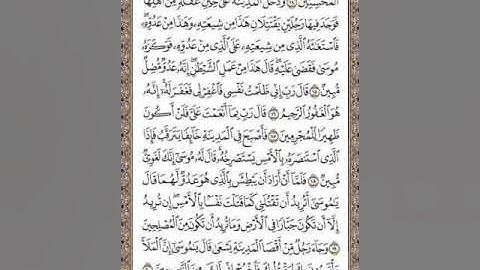 ٱلْمُحْسِنِينَ ١٤ وَدَخَلَ ٱلْمَدِينَةَ عَلَىٰ حِينِ غَفْلَةٍ مِّنْ أَهْلِهَا
فَوَجَدَ فِيهَا رَجُلَيْنِ يَقْتَتِلَانِ هَٰذَا مِن شِيعَتِهِۦ وَهَٰذَا مِنْ عَدُوِّهِۦ ۖ
فَٱسْتَغَٰثَهُ ٱلَّذِى مِن شِيعَتِهِۦ عَلَى ٱلَّذِى مِنْ عَدُوِّهِۦ فَوَكَزَهُۥ
مُوسَىٰ فَقَضَىٰ عَلَيْهِ ۖ قَالَ هَٰذَا مِنْ عَمَلِ ٱلشَّيْطَٰنِ ۖ إِنَّهُۥ عَدُوٌّ مُّضِلٌّ
مُّبِينٌ ١٥ قَالَ رَبِّ إِنِّى ظَلَمْتُ نَفْسِى فَٱغْفِرْ لِى فَغَفَرَ لَهُۥٓ ۚ إِنَّهُۥ
هُوَ ٱلْغَفُورُ ٱلرَّحِيمُ ١٦ قَالَ رَبِّ بِمَآ أَنْعَمْتَ عَلَىَّ فَلَنْ أَكُونَ
ظَهِيرًا لِّلْمُجْرِمِينَ ١٧ فَأَصْبَحَ فِى ٱلْمَدِينَةِ خَآئِفًا يَتَرَقَّبُ فَإِذَا
ٱلَّذِى ٱسْتَنصَرَهُۥ بِٱلْأَمْسِ يَسْتَصْرِخُهُۥ ۚ قَالَ لَهُۥ مُوسَىٰٓ إِنَّكَ لَغَوِىٌّ
مُّبِينٌ ١٨ فَلَمَّآ أَنْ أَرَادَ أَن يَبْطِشَ بِٱلَّذِى هُوَ عَدُوٌّ لَّهُمَا قَالَ
يَٰمُوسَىٰٓ أَتُرِيدُ أَن تَقْتُلَنِى كَمَا قَتَلْتَ نَفْسًۢا بِٱلْأَمْسِ ۖ إِن تُرِيدُ
إِلَّآ أَن تَكُونَ جَبَّارًا فِى ٱلْأَرْضِ وَمَا تُرِيدُ أَن تَكُونَ مِنَ ٱلْمُصْلِحِينَ
١٩ وَجَآءَ رَجُلٌ مِّنْ أَقْصَا ٱلْمَدِينَةِ يَسْعَىٰ قَالَ يَٰمُوسَىٰٓ إِنَّ ٱلْمَلَأَ